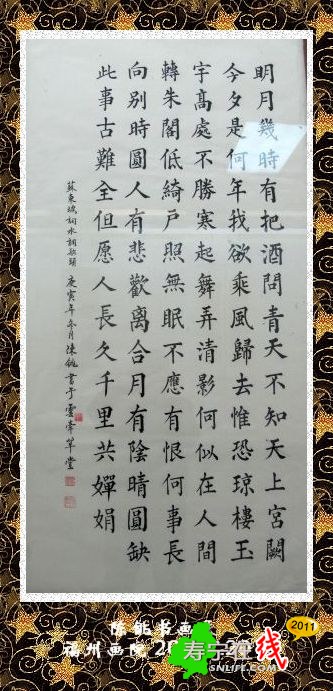 明月幾時有把酒問青天不知天上宮闕
今夕是何年我欲乘風歸去惟恐琼樓玉
宇高處不勝寒起舞弄清影何似在人間
轉朱閣低綺户照無眠不應有恨何事長
向别時圓人有悲歡离合月有陰晴圓缺
此事古難全但愿人長久千里共嬋娟
蘇東坡詞水調歌頭 庚寅年冬月陳能書于靈峯草堂
2011
陈能书画
福州画院
寿宁在线
SNLIFE.COM